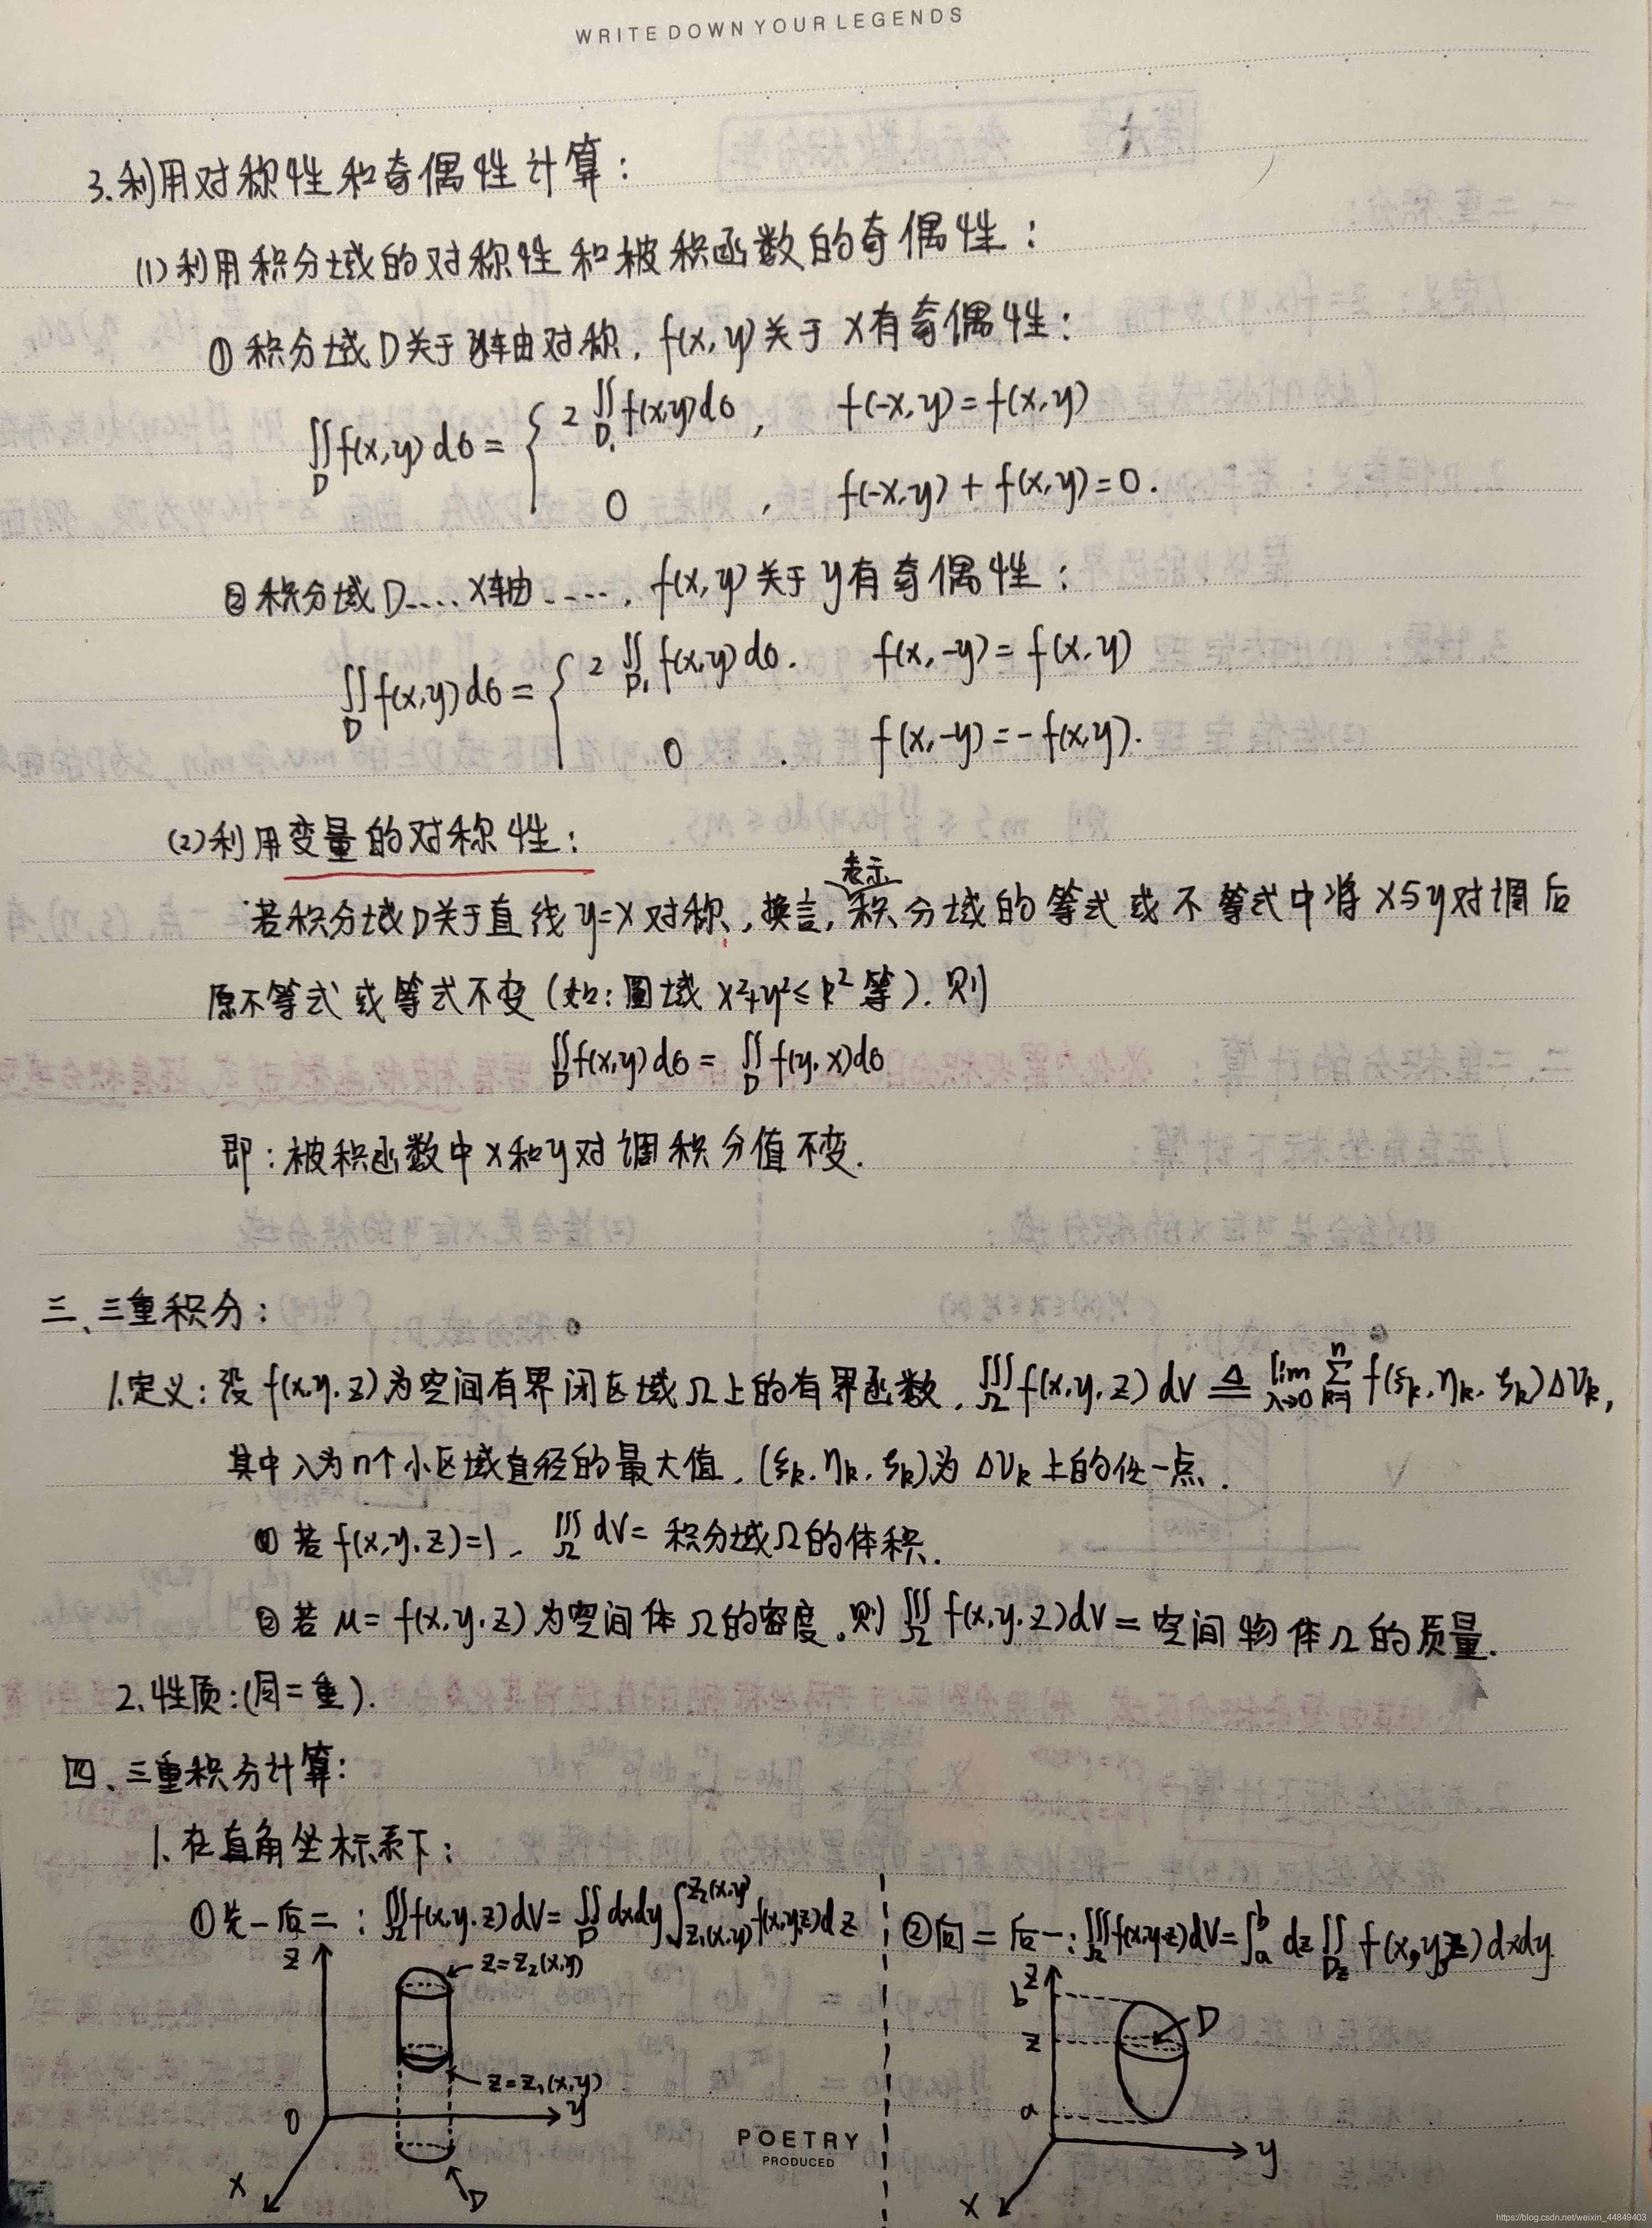 WRITE DOWN YOUR LEGENDS
3.利用对称性和奇偶性计算：
(1)利用积分域的对称性和被积函数的奇偶性：
①积分域D关于y轴由对称，f(x,y)关于x有奇偶性：
∬_D f(x,y)dσ = { 2∬_{D₁} f(x,y)dσ， f(-x,y)=f(x,y)
0 ， f(-x,y)+f(x,y)=0.
②积分域D....x轴由....，f(x,y)关于y有奇偶性：
∬_D f(x,y)dσ = { 2∬_{D₁} f(x,y)dσ. f(x,-y)=f(x,y)
0 . f(x,-y)=-f(x,y).
(2)利用变量的对称性：
表示
若积分域D关于直线y=x对称，换言，积分域的等式或不等式中将x与y对调后
原不等式或等式不变(如：圆域x²+y²≤R²等).则
∬_D f(x,y)dσ = ∬_D f(y,x)dσ
即：被积函数中x和y对调积分值不变.
三、三重积分：
1.定义：设f(x,y,z)为空间有界闭区域Ω上的有界函数，∭_Ω f(x,y,z)dV ≜ lim_{λ→0} Σ_{k=1}^{n} f(ξ_k,η_k,ζ_k)ΔV_k，
其中λ为n个小区域直径的最大值，(ξ_k,η_k,ζ_k)为ΔV_k上的任一点.
①若f(x,y,z)=1，∭_Ω dV=积分域Ω的体积.
②若μ=f(x,y,z)为空间体Ω的密度，则∭_Ω f(x,y,z)dV=空间物体Ω的质量.
2.性质：(同二重).
四、三重积分计算：
1.在直角坐标系下：
①先一后二：∭_Ω f(x,y,z)dV=∬_D dxdy∫_{z₁(x,y)}^{z₂(x,y)} f(x,y,z)dz
②向二后一：∭_Ω f(x,y,z)dV=∫_a^b dz∬_{D_z} f(x,y,z)dxdy
z
z=z₂(x,y)
z=z₁(x,y)
0
y
x
D
z
b
D
z
a
y
x
POETRY
PRODUCED
https://blog.csdn.net/weixin_44849403